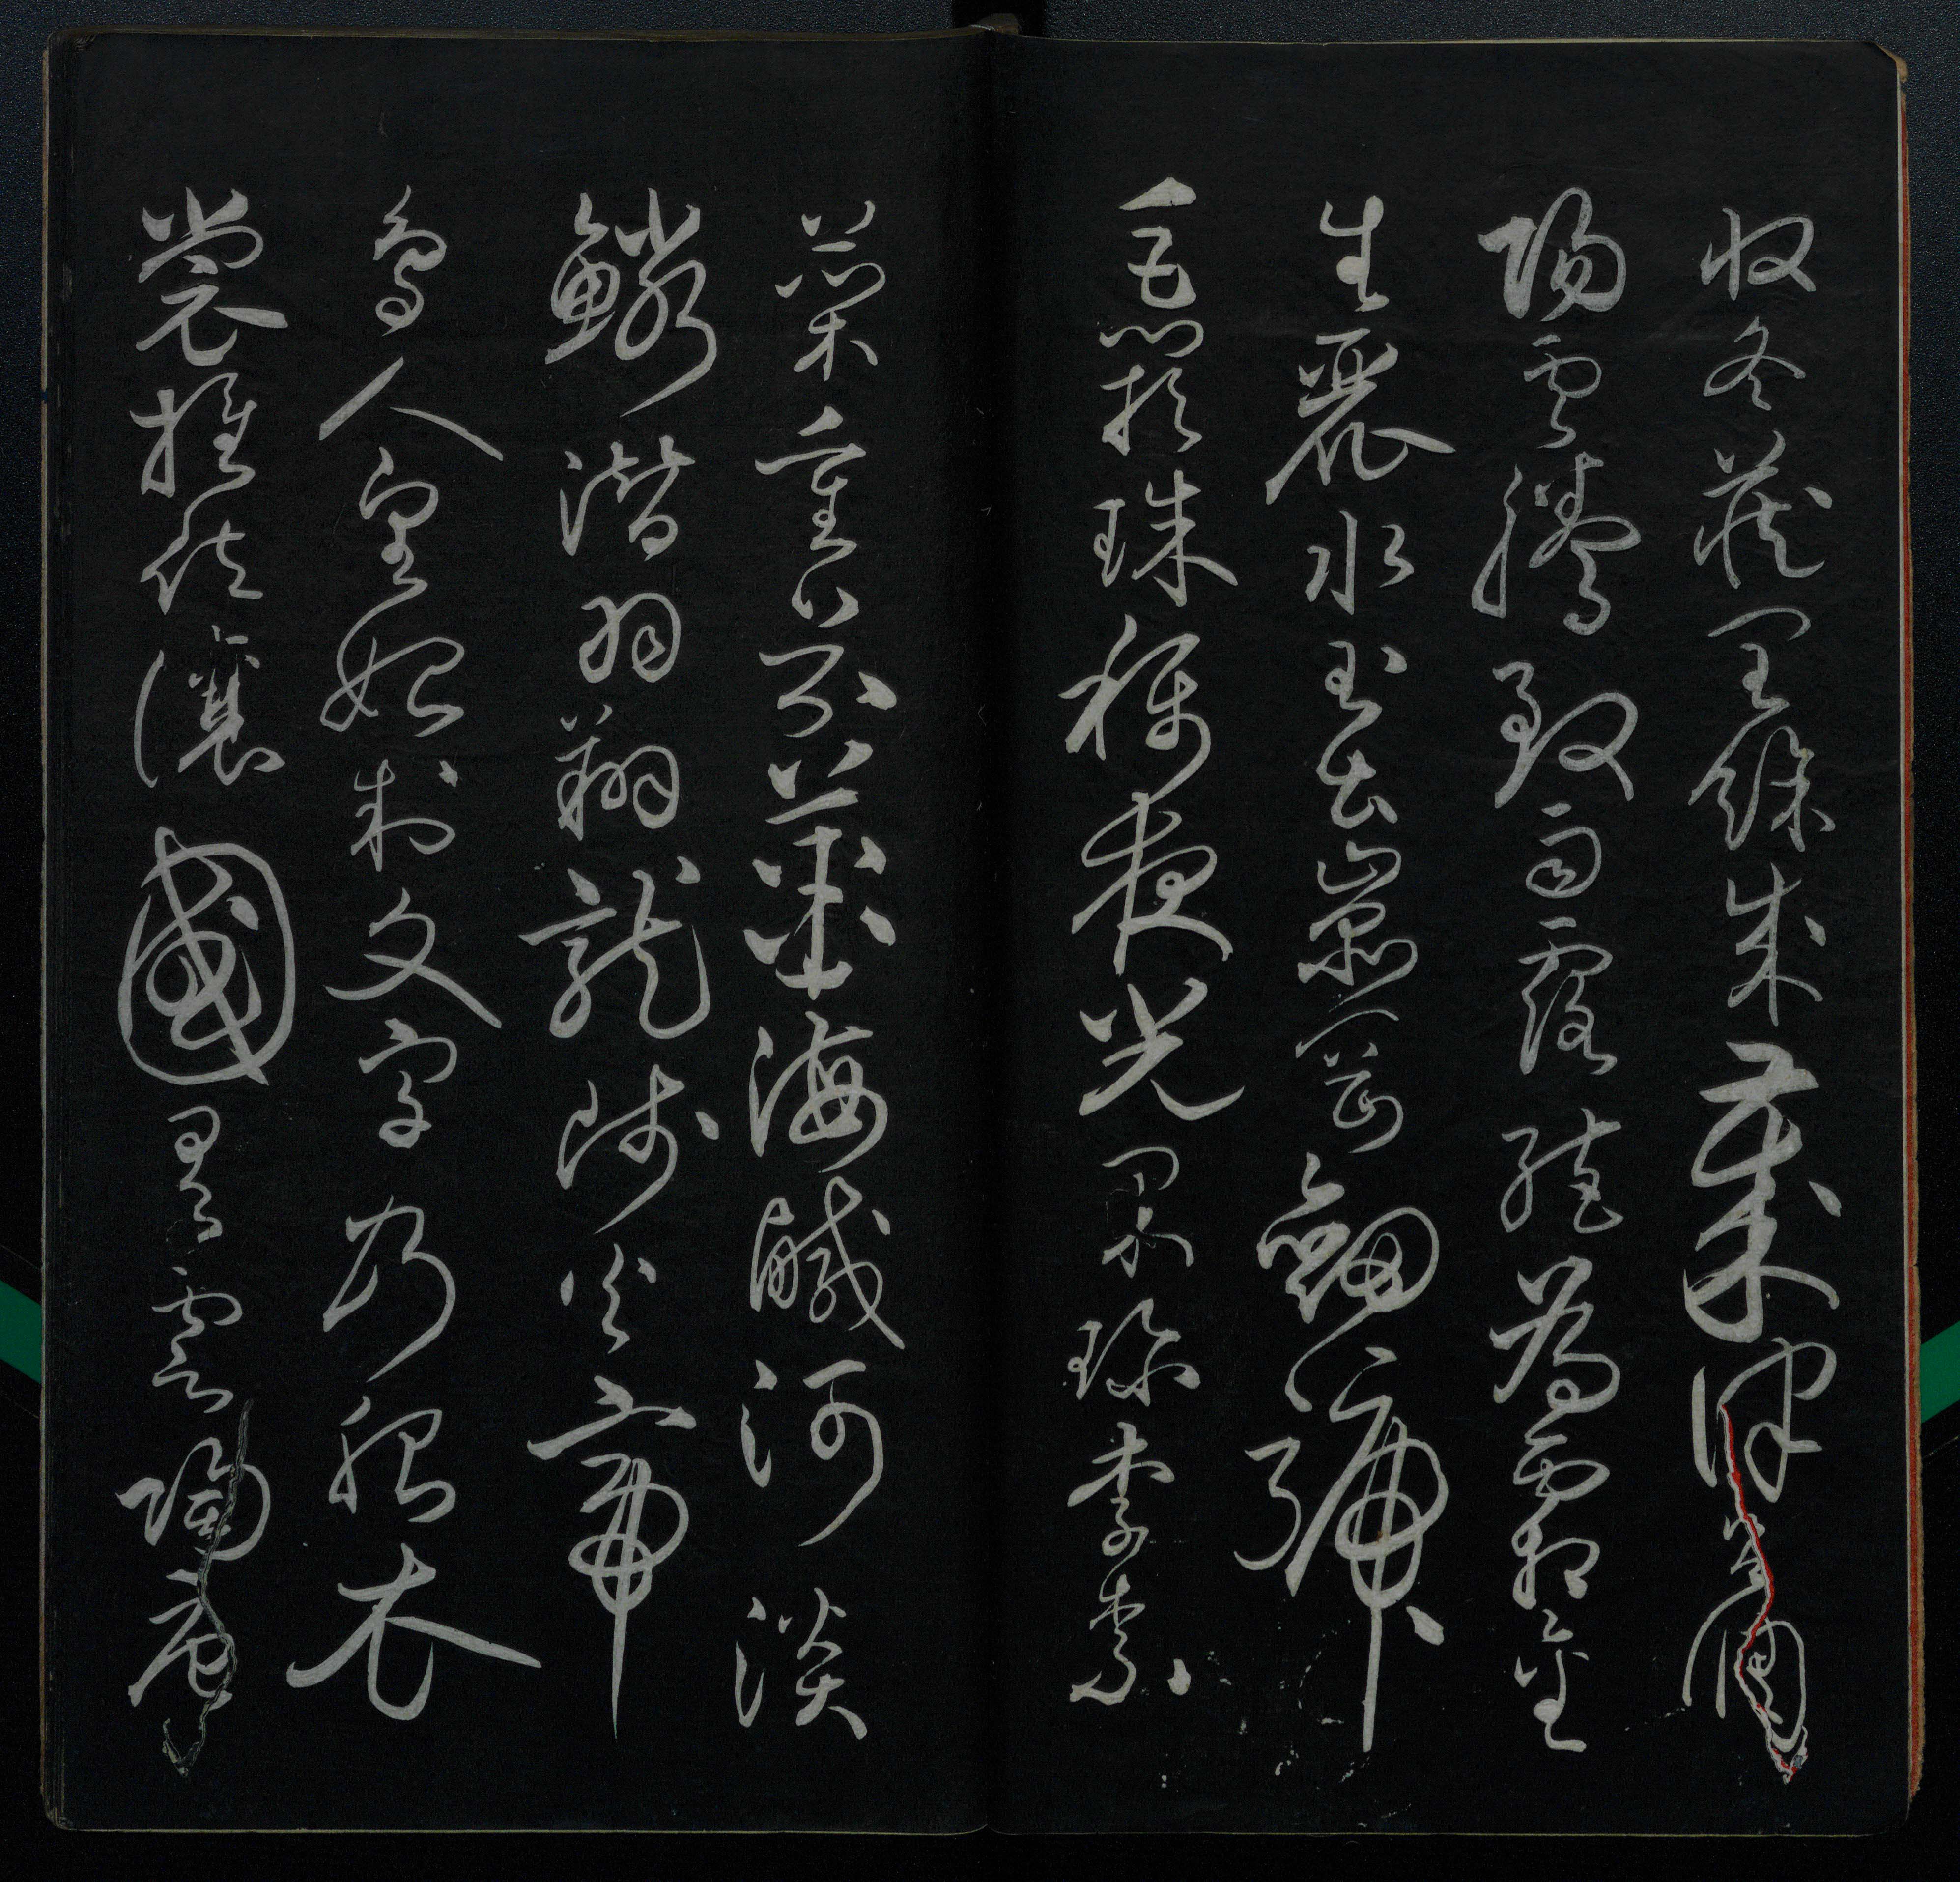 收冬藏閏餘成歲律調
陽雲騰致雨露結為霜金
生麗水玉出崑崗劍號
巨闕珠稱夜光果珍李柰
菜重芥薑海鹹河淡
鱗潛羽翔龍師火帝
鳥人皇始制文字乃服衣
裳推位讓國有虞陶唐